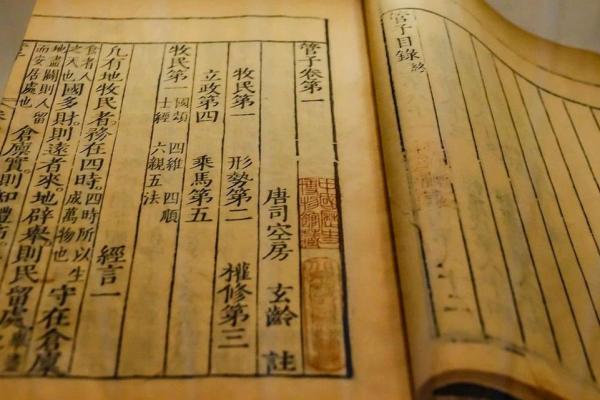 管子目錄 終
管子卷第一
中國歷史
博物館藏
唐司空房 玄齡 註
牧民第一 形勢第二 權修第三
立政第四 乘馬第五
牧民第一 國頌 四維 四順
士經 六親五法
經言一
凡有地牧民者務在四時。四時所以生成萬物也 守在倉廩
食者人之天也 國多財。則遠者來。地辟舉。則民留處。
地盡闢則人留而安居處也 倉廩實。則知禮節。